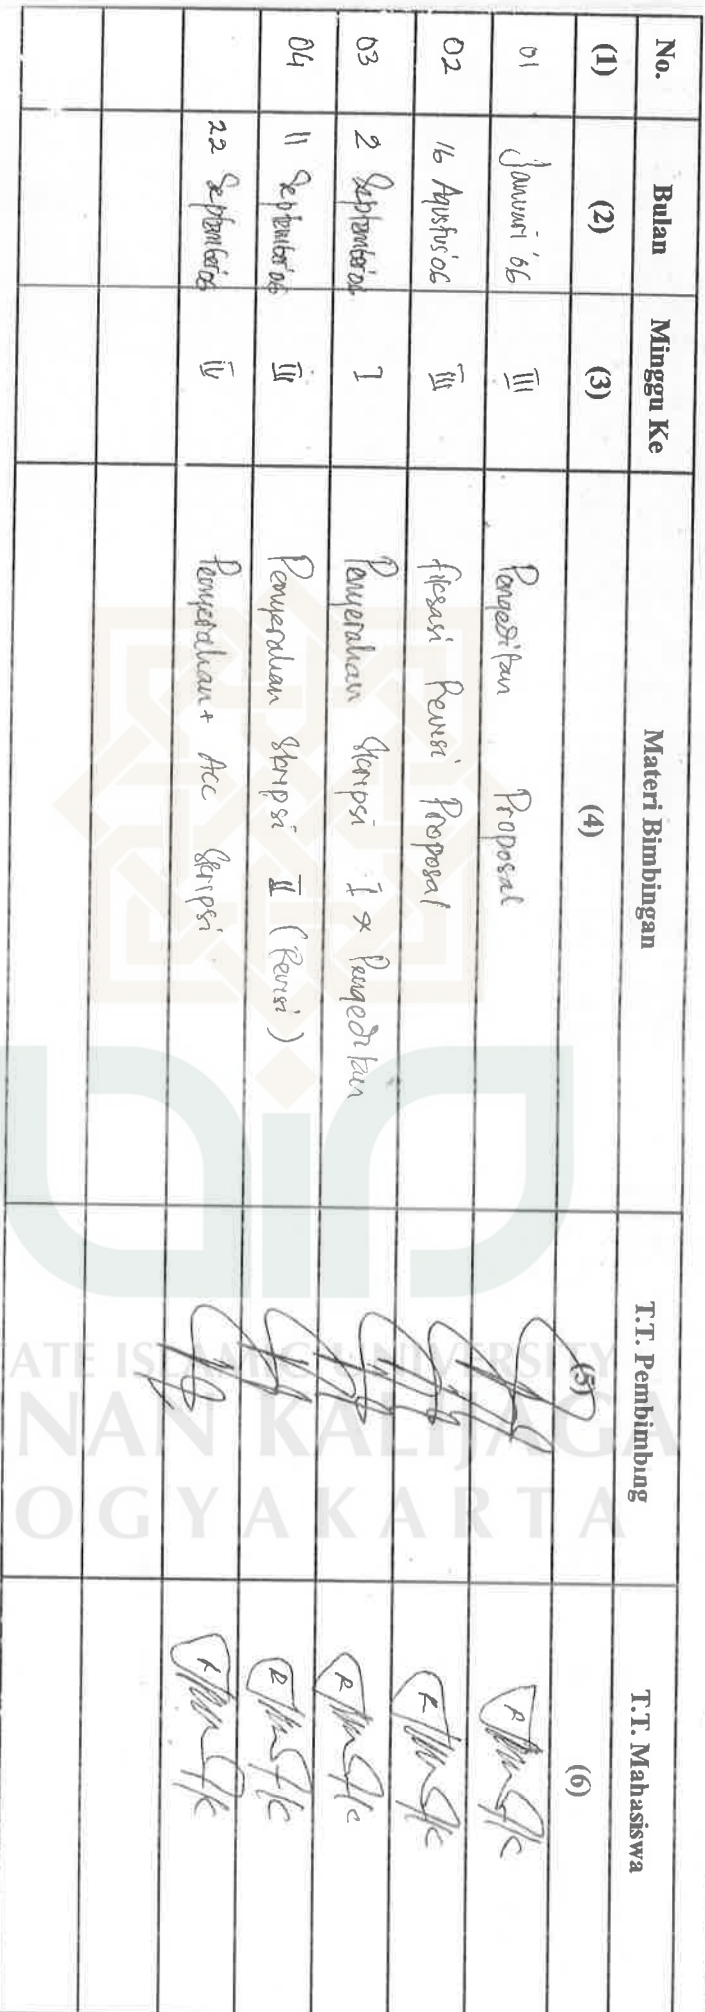 No. Bulan Minggu Ke Materi Bimbingan T.T. Pembimbing T.T. Mahasiswa
(1) (2) (3) (4) (5) (6)
01 Januari '06 III Pengeditan Proposal
02 16 Agustus '06 III fiksasi Revisi Proposal
03 2 September '06 I Penyerahan Skripsi I & Pengeditan
04 11 September '06 III Penyerahan Skripsi II (Revisi)
22 September '06 IV Penyerahan + Acc Skripsi
ATE ISLAMIC UNIVERSITY
NAN KALIJAGA
OGYAKARTA